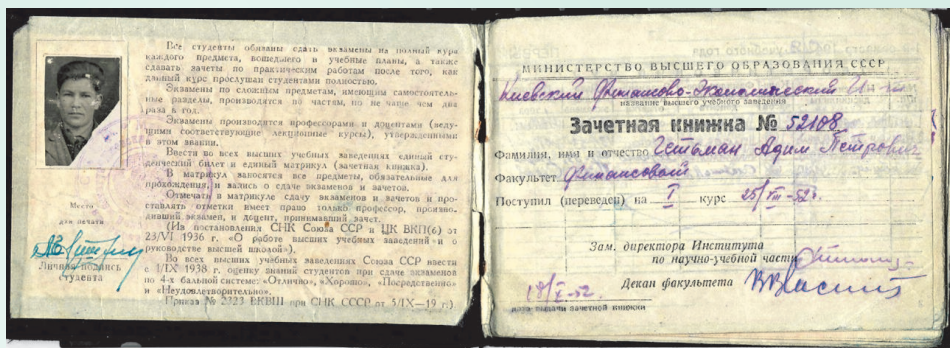 Все студенты обязаны сдать экзамены за полный курс
каждого предмета, вошедшего в учебные планы, а также
сдавать зачеты по практическим работам после того, как
данный курс прослушан студентами полностью.
Экзамены по сложным предметам, имеющим самостоятель-
ные разделы, производятся по частям, но не чаще чем два
раза в год.
Экзамены производятся профессорами и доцентами (веду-
щими соответствующие лекционные курсы), утвержденными
в этом звании.
Ввести во всех высших учебных заведениях единый сту-
денческий билет и единый матрикул (зачетная книжка).
В матрикул заносятся все предметы, обязательные для
прохождения, и запись о сдаче экзаменов и зачетов.
Отмечать в матрикуле сдачу экзаменов и зачетов и про-
ставлять отметки имеет право только профессор, произво-
дивший экзамен, и доцент, принимавший зачет.
(Из постановления СНК Союза ССР и ЦК ВКП(б) от
23/VI 1936 г. «О работе высших учебных заведений и о
руководстве высшей школой»).
Во всех высших учебных заведениях Союза ССР ввести
с 1/IX 1938 г. оценку знаний студентов при сдаче экзаменов
по 4-х бальной системе: «Отлично», «Хорошо», «Посредственно»
и «Неудовлетворительно».
(Приказ № 2323 ВКВШ при СНК СССР от 5/IX—19 г.)
Место
для печати
Личная подпись
студента
МИНИСТЕРСТВО ВЫСШЕГО ОБРАЗОВАНИЯ СССР
Киевский Финансово-Экономический И-т
название высшего учебного заведения
Зачетная книжка № 52108
Фамилия, имя и отчество Гетьман Адим Петрович
Факультет Финансовый
Поступил (переведен) на I курс 25/VIII-52г.
Зам. директора Института
по научно-учебной части
Декан факультета
18/X-52.
дата выдачи зачетной книжки